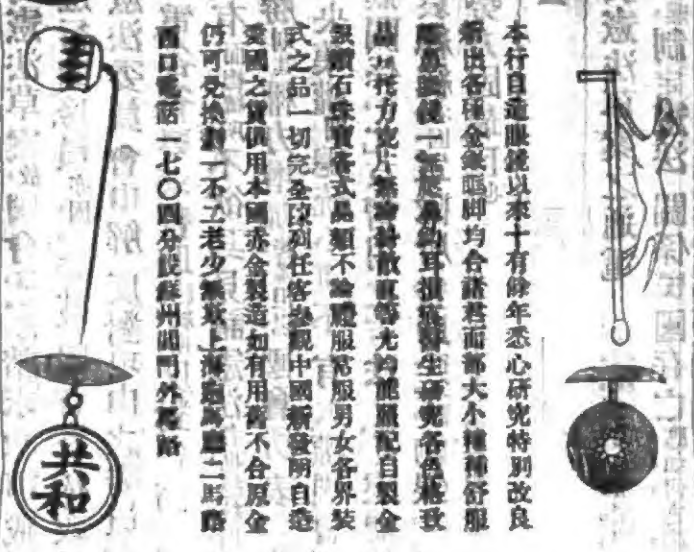 本行自造眼鏡以來十有餘年悉心研究特別改良
新出各種金絲腳均合諸君面部大小種種舒服
鏡一無壓鼻之耳損衛生研究各色格致
晶托力克片無論散直等光均能照配自製金
鋼鑽石珠寶各式品類不論禮服常服男女各界裝
式之品一切完全陳列任客參觀中國新發明自造
愛國之貨俱用本國赤金製造如有用舊不合原金
仍可兌換劃一不二老少無欺上海跑馬廳二馬路
西口電話一七〇四分設蘇州閶門外馬路
共和